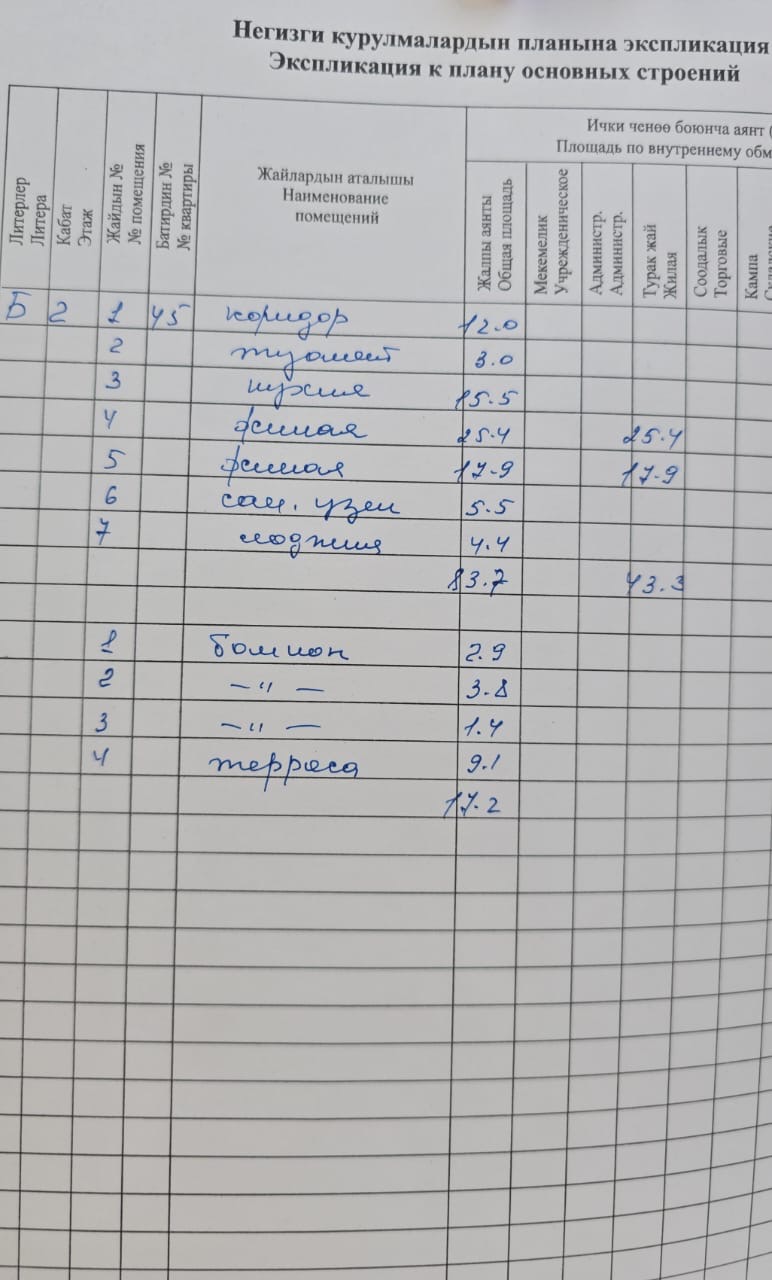 Негизги курулмалардын планына экспликация
Экспликация к плану основных строений
Литерлер Литера
Кабат Этаж
Жайдын № № помещения
Батирдин № № квартиры
Жайлардын аталышы
Наименование
помещений
Ички ченөө боюнча аянт (
Площадь по внутреннему обм
Жалпы аянты Общая площадь
Мекемелик Учрежденическое
Администр. Администр.
Турак жай Жилая
Соодалык Торговые
Кампа Складские
Б 2 1 45 коридор 12.0
2 туалет 3.0
3 кухня 15.5
4 жилая 25.4 25.4
5 жилая 17.9 17.9
6 сан. узел 5.5
7 лоджия 4.4
83.7 43.3
1 балкон 2.9
2 —〃— 3.8
3 —〃— 1.4
4 терраса 9.1
17.2